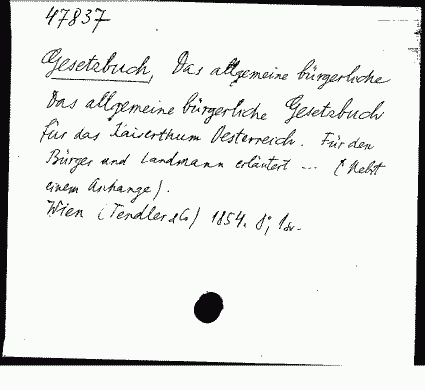 47837
Gesetzbuch, Das allgemeine bürgerliche
Das allgemeine bürgerliche Gesetzbuch
für das Kaiserthum Oesterreich. Für den
Bürger und Landmann erläutert ... (Nebst
einem Anhange).
Wien (Tendler & Co) 1854. 8°, 1